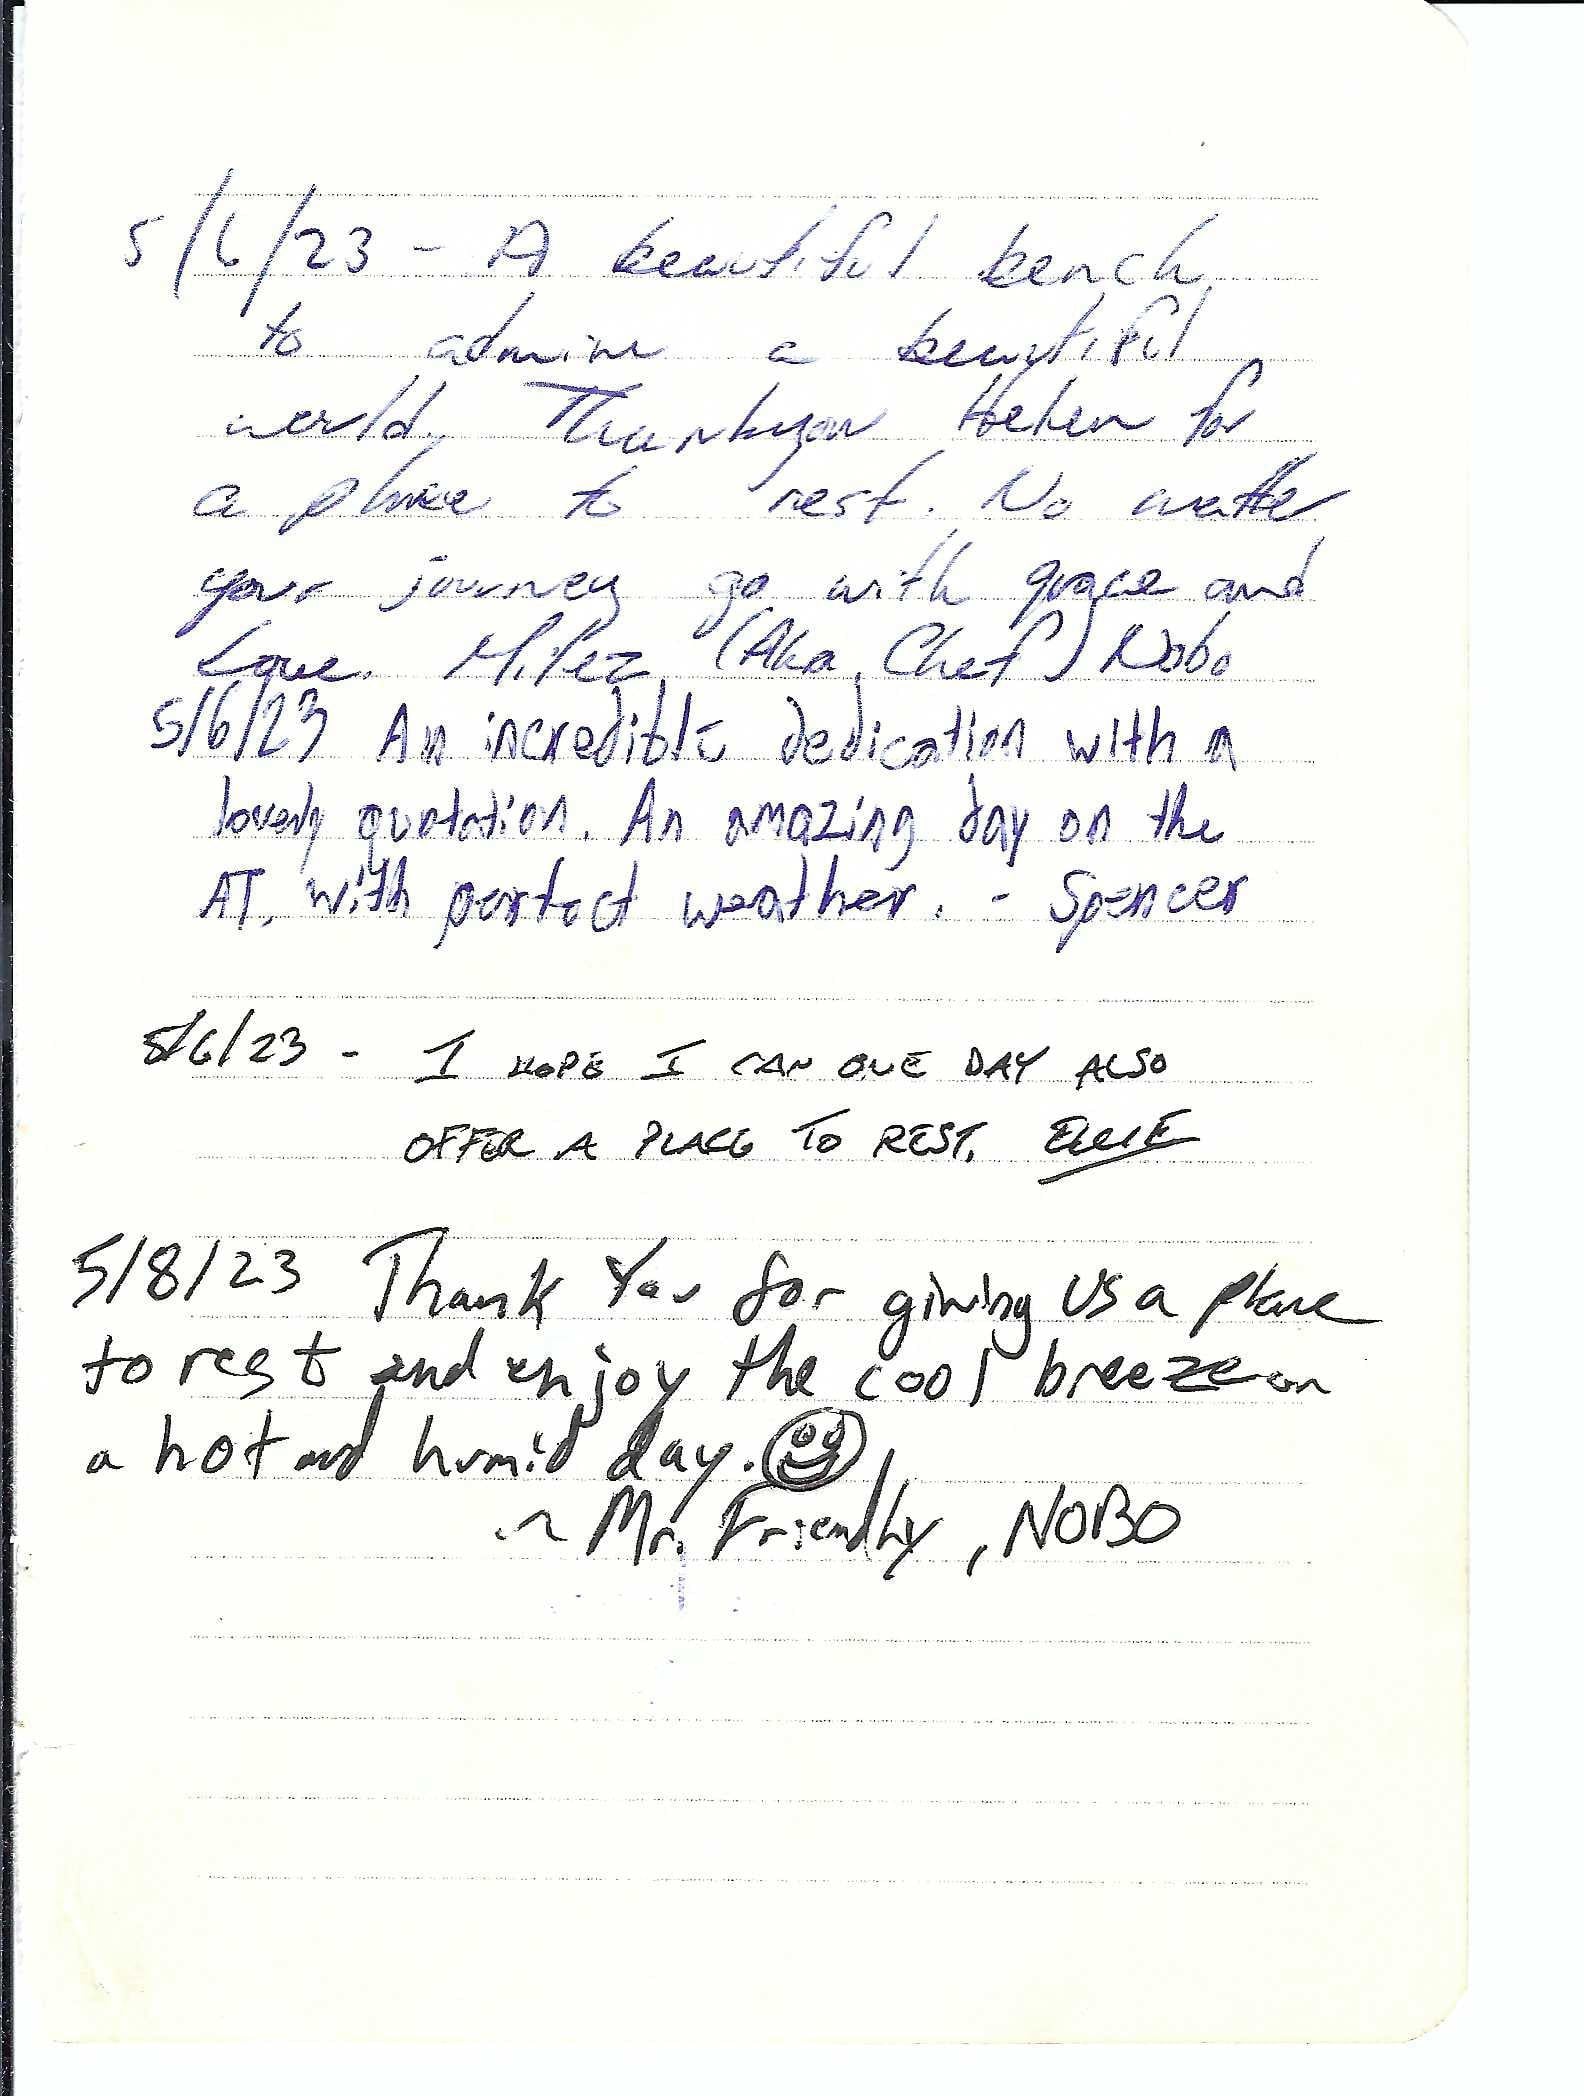 5/6/23 - A beautiful bench
to admire a beautiful
world. Thankyou Helen for
a place to rest. No matter
your journey go with grace and
Love. (Aka Chef) Nobo
5/6/23 An incredible dedication with a
lovely quotation. An amazing day on the
AT, with perfect weather. - Spencer
5/6/23 - I HOPE I CAN ONE DAY ALSO
OFFER A PLACE TO REST. ELLIE
5/8/23 Thank You for giving us a place
to rest and enjoy the cool breeze on
a hot and humid day.
~ Mr. Friendly, NOBO